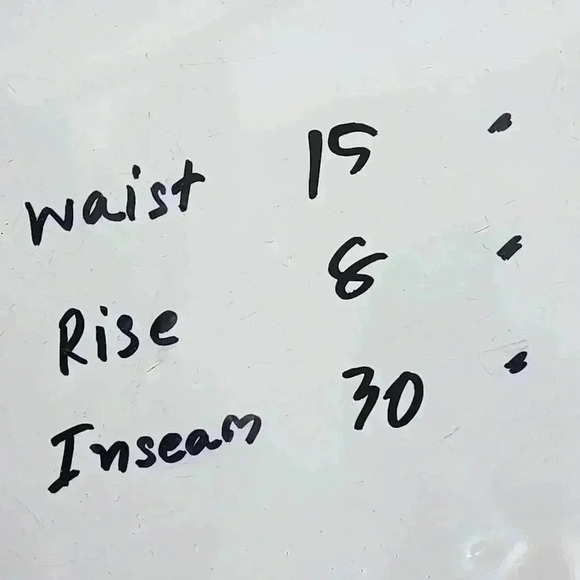 Waist 15 "
Rise 8 "
Inseam 30 "